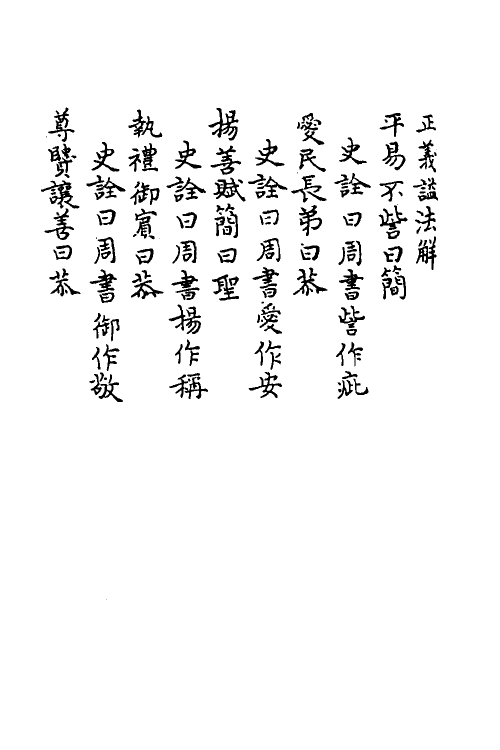 正義諡法解
平易不訾曰簡
史詮曰周書訾作疵
愛民長弟曰恭
史詮曰周書愛作安
揚善賦簡曰聖
史詮曰周書揚作稱
執禮御賔曰恭
史詮曰周書御作敬
尊賢讓善曰恭